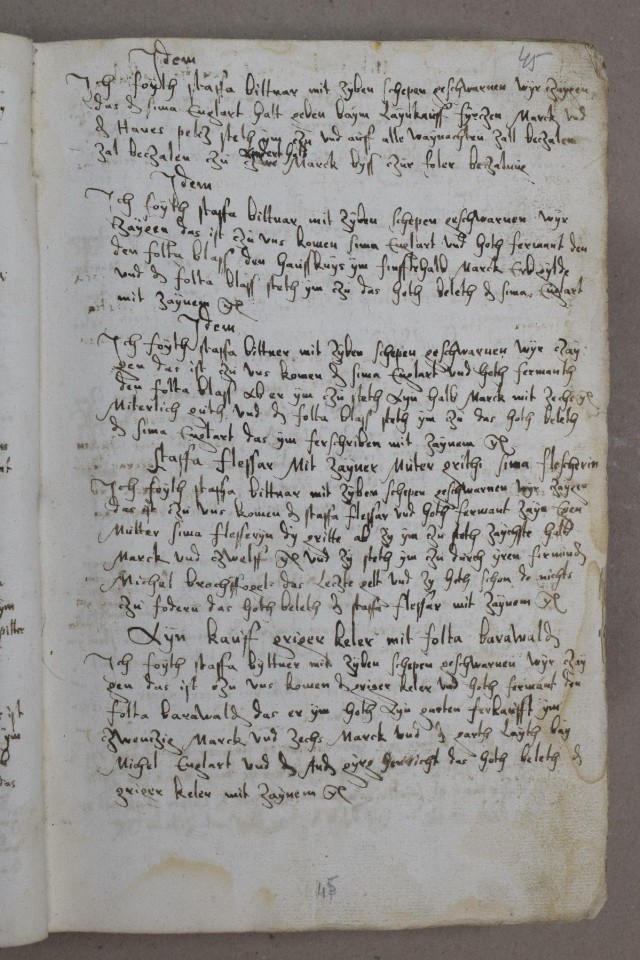 45
Idem
Ich foÿth staffa bittnar mit zÿben schepen geschwarnen wÿr zaÿgen
das d sima Englart halt geben baÿm Laÿtkauff fyrczen Marck vnd
d Hanes pelz steth ym zu vnd auff alle waÿnachten zall beczalen
zal beczalen zu Marck byss czur feler beczalung
Idem
Ich foÿth staffa bittnar mit zÿben schepen geschwarnen wÿr
Zaÿgen das ist czu vns komen sima Englart vnd Hoth fermant den
den folta blass den ym finffthalb Marck
vnd d folta blass steth ym czu das Hoth beleth d sima Englart
mit Zaÿnem
Idem
Ich foÿth staffa bittner mit zÿben schepen geschwarnen wÿr czaÿ
gen das ist czu vns komen d sima Englart vnd Hoth fermanth
den folta blass ym czu steth Lyn Halb Marck mit Zechs
Miterlich guth vnd d folta blass steth ym czu das Hoth beleth
d sima Englart das ym ferschriben mit Zaÿnem
staffa flessar Mit Zaÿner Muter sima flescherin
Ich foÿth staffa bittnar mit zÿben schepen geschwarnen wÿr Zaÿgen
das ist czu vns komen d staffa flessar vnd Hoth fermant Zaÿn
Mutter sima flesseryn dÿ ob zÿ ym zu steth Zaÿchte Halb
Marck vnd czwelff vnd zÿ steth ym czu durch ÿren formund
Michal das Leczte gelt vnd zÿ Hoth schon do nichts
zu fodern das Hoth beleth d staffa flessar mit Zaÿnem
Lyn kauff griger keler mit folta barawald
Ich foÿth staffa bÿttner mit zÿben schepen geschwarnen wÿr Zaÿ
gen das ist czu vns komen d griger keler vnd Hoth fermant den
folta barawald das er ym Hoth Lyn garten ferkaufft ym
Zwenczig Marck vnd Zechs Marck vnd d garth Laÿth baÿ
Michel Englart vnd d das Hoth beleth d
griger keler mit Zaÿnem
45